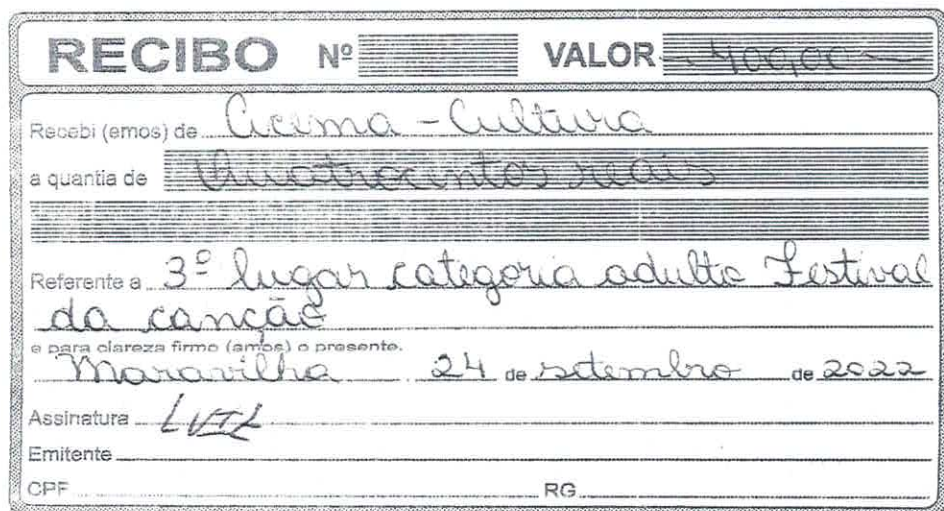 RECIBO Nº VALOR 400,00
Recebi (emos) de Acema - Cultura
a quantia de Quatrocentos reais
Referente a 3º lugar categoria adulto Festival
da canção
e para clareza firmo (amos) o presente.
Maravilha 24 de setembro de 2022
Assinatura
Emitente
CPF RG